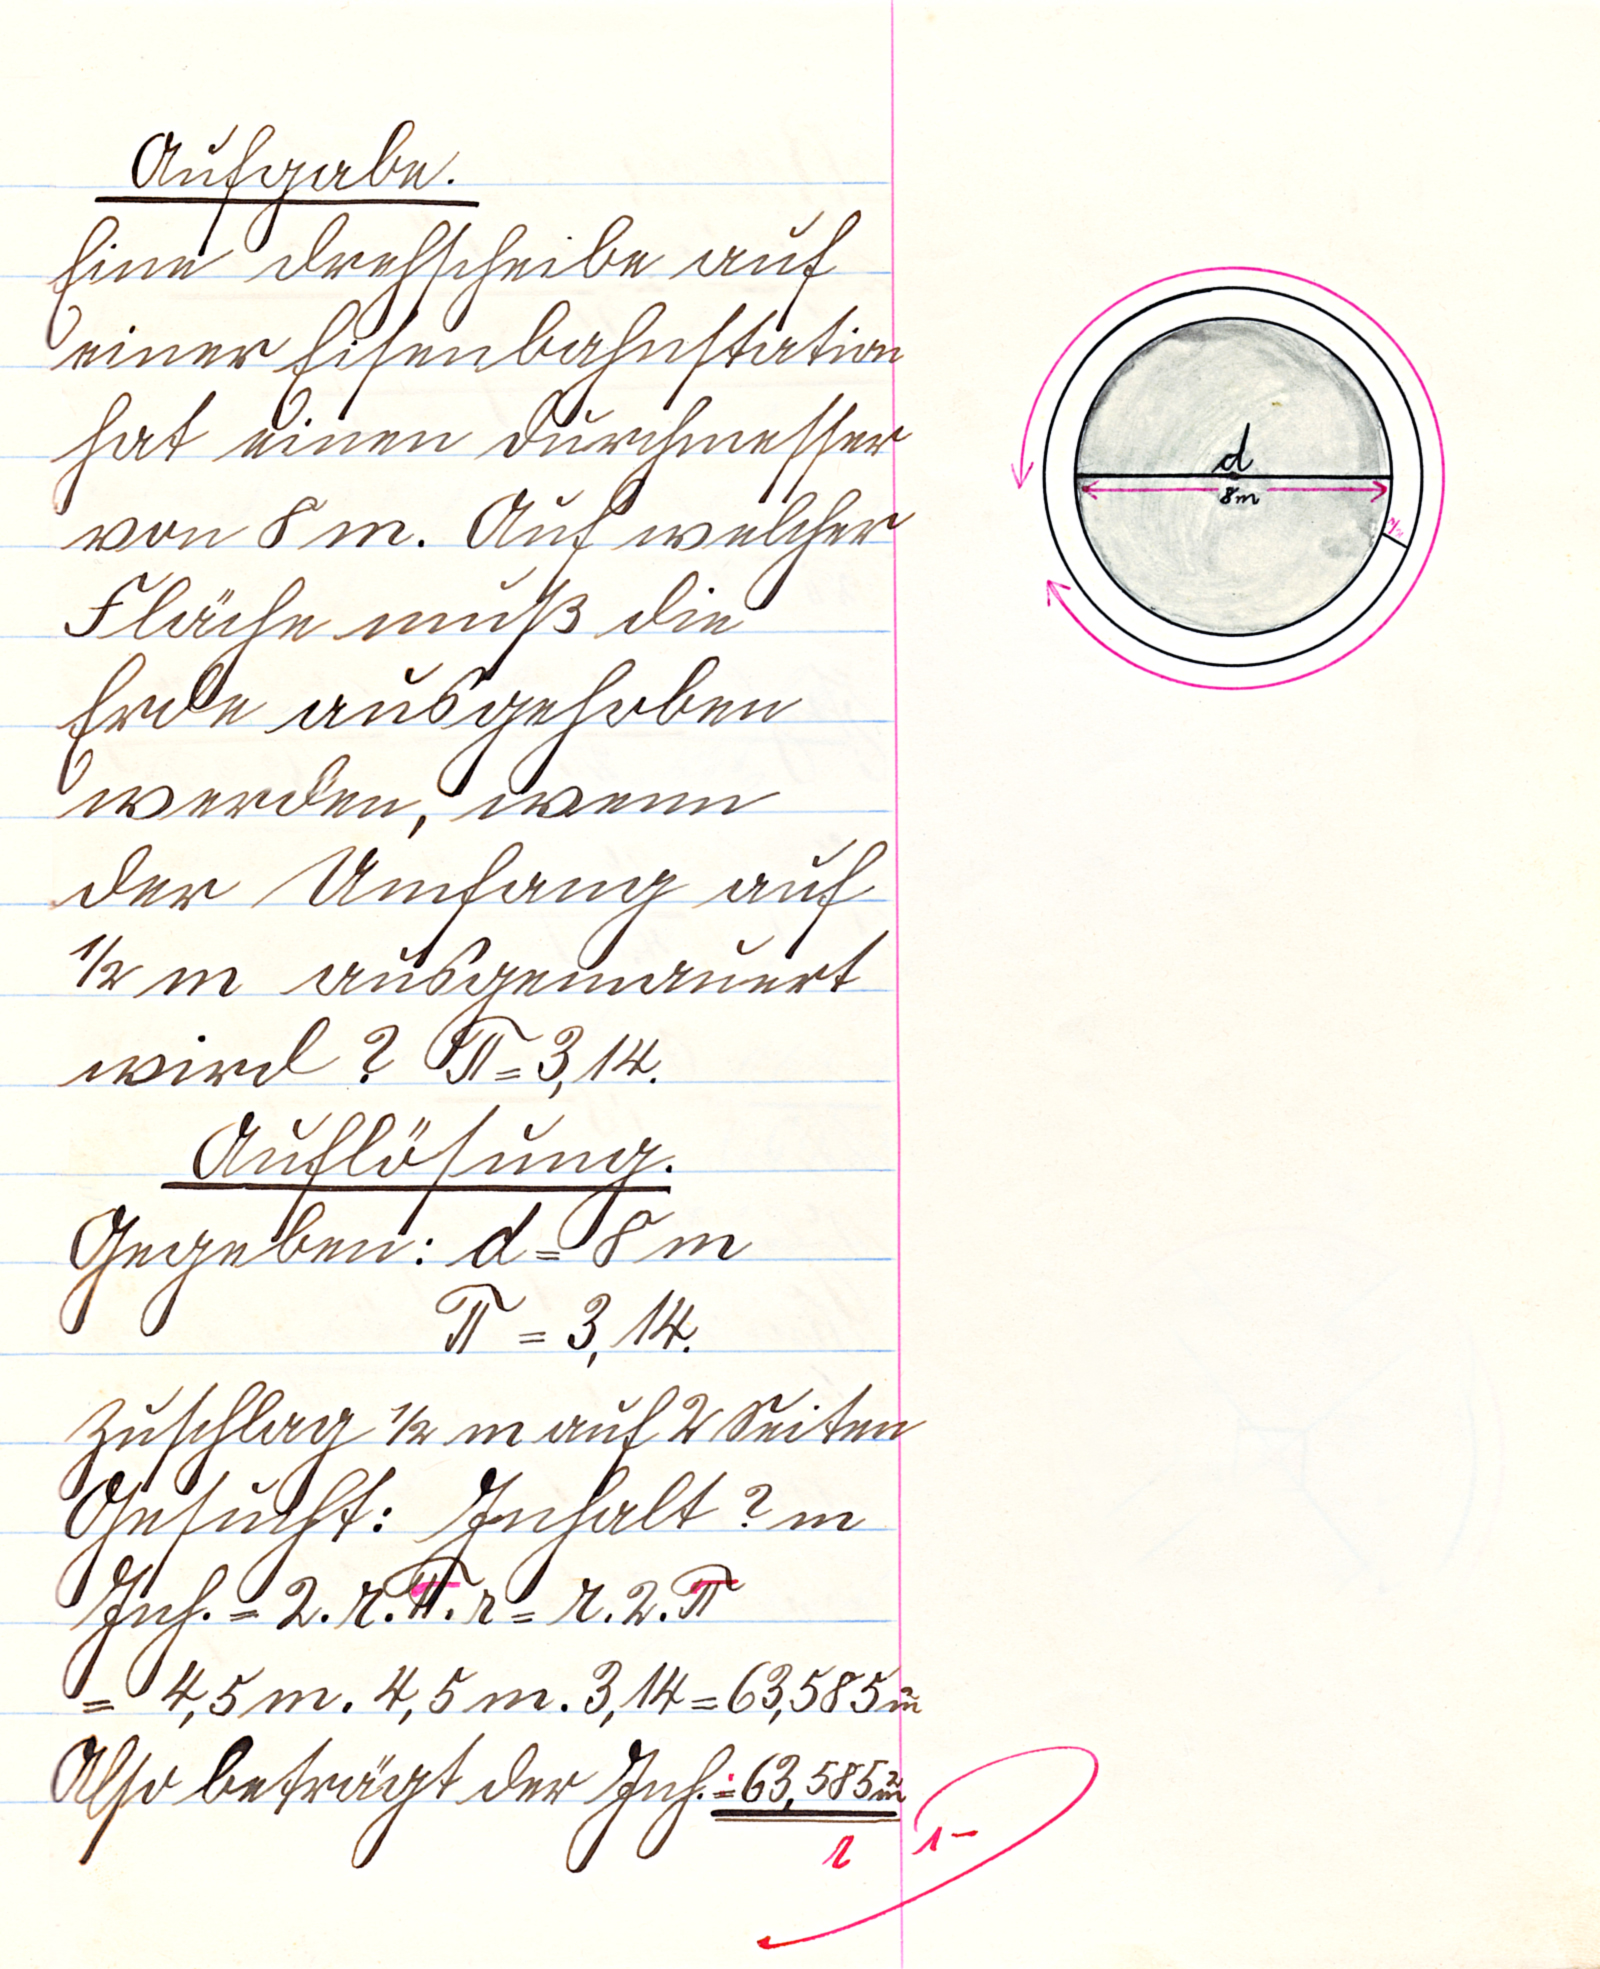 Aufgabe.
Eine Drehscheibe auf
einer Eisenbahnstation
hat einen Durchmesser
von 8 m. Auf welcher
Fläche muß die
Erde ausgehoben
werden, wenn
der Umfang auf
1/2 m ausgemauert
wird? π = 3,14.
Auflösung.
Gegeben: d = 8 m
π = 3,14.
Zuschlag 1/2 m auf 2 Seiten
Gesucht: Inhalt ? m
Inh. = 2. r. π. r = r. 2. π
= 4,5 m. 4,5 m. 3,14 = 63,585 m²
Also beträgt der Inh. = 63,585 m²
r 1-
d
8 m
1/2